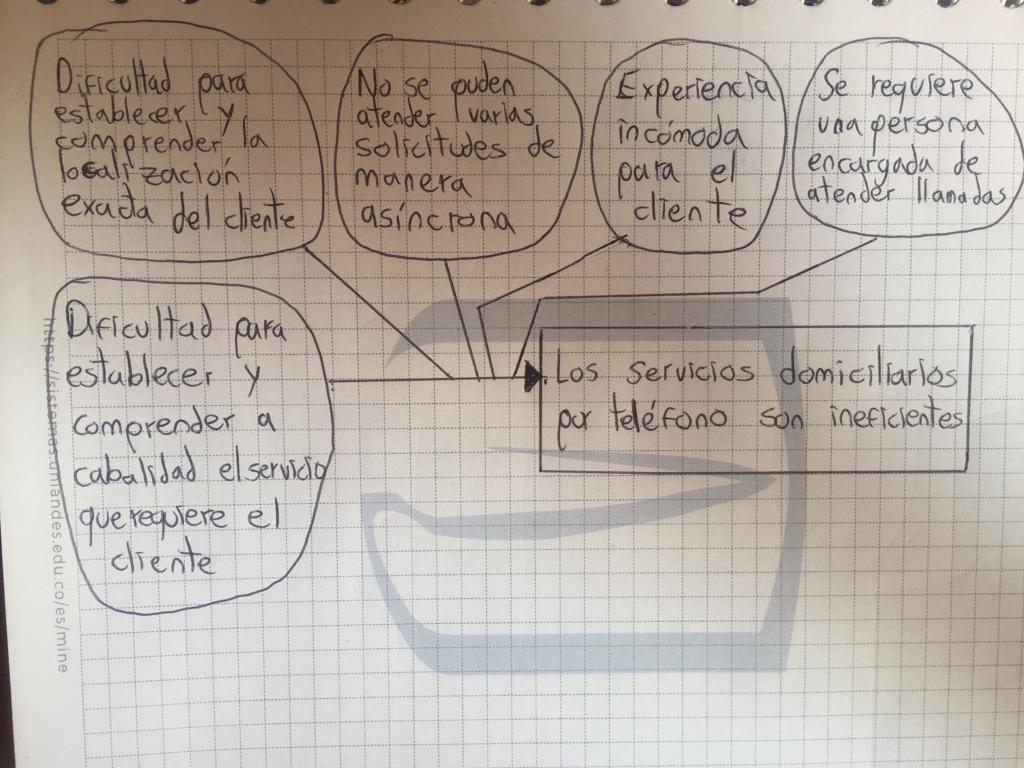 Dificultad para
establecer y
comprender la
localización
exacta del cliente
No se puden
atender varias
solicitudes de
manera
asíncrona
Experiencia
incómoda
para el
cliente
Se requiere
una persona
encargada de
atender llamadas
Dificultad para
establecer y
comprender a
cabalidad el servicio
que requiere el
cliente
Los servicios domiciliarios
por teléfono son ineficientes
https://sistemas.uniandes.edu.co/es/mine